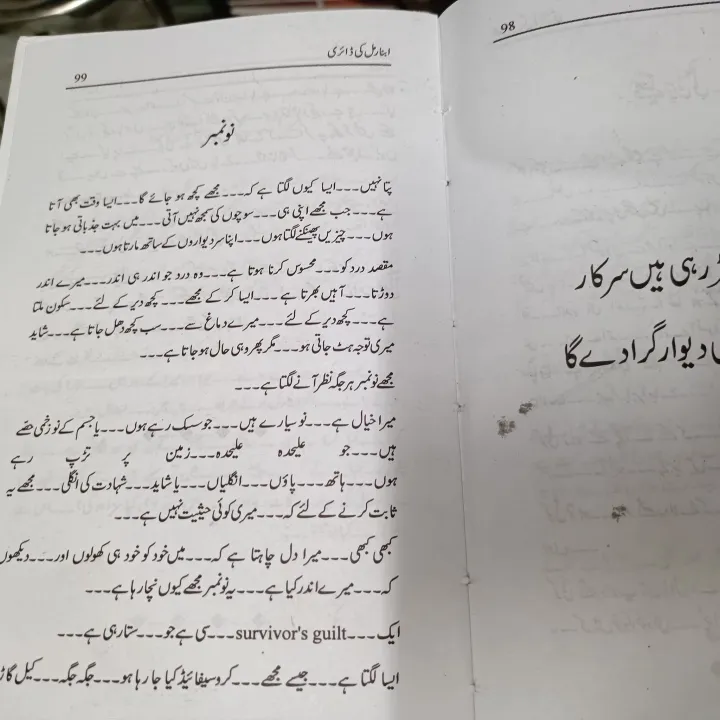 ابنارمل کی ڈائری
99
نو نمبر
پتا نہیں۔۔۔ایسا کیوں لگتا ہے کہ۔۔۔مجھے کچھ ہو جائے گا۔۔۔ایسا وقت بھی آتا
ہے۔۔۔جب مجھے اپنی ہی۔۔۔سوچوں کی سمجھ نہیں آتی۔۔۔میں بہت جذباتی ہو جاتا
ہوں۔۔۔چیزیں پھینکنے لگتا ہوں۔۔۔اپنا سر دیواروں کے ساتھ مارتا ہوں۔۔۔
مقصد درد کو۔۔۔محسوس کرنا ہوتا ہے۔۔۔وہ درد جو اندر ہی اندر۔۔۔میرے اندر
دوڑتا۔۔۔آہیں بھرتا ہے۔۔۔ایسا کر کے مجھے۔۔۔کچھ دیر کے لئے۔۔۔سکون ملتا
ہے۔۔۔کچھ دیر کے لئے۔۔۔میرے دماغ سے۔۔۔سب کچھ دھل جاتا ہے۔۔۔شاید
میری توجہ ہٹ جاتی ہو۔۔۔مگر پھر وہی حال ہو جاتا ہے۔۔۔
مجھے نو نمبر ہر جگہ نظر آنے لگتا ہے۔۔۔
میرا خیال ہے۔۔۔نو سیارے ہیں۔۔۔جو سسک رہے ہوں۔۔۔یا جسم کے نو زخمی حصے
ہیں۔۔۔جو علیحدہ علیحدہ۔۔۔زمین پر تڑپ رہے
ہوں۔۔۔ہاتھ۔۔۔پاؤں۔۔۔انگلیاں۔۔۔یا شاید۔۔۔شہادت کی انگلی۔۔۔مجھے یہ
ثابت کرنے کے لئے کہ۔۔۔میری کوئی حیثیت نہیں ہے۔۔۔
کبھی کبھی۔۔۔میرا دل چاہتا ہے کہ۔۔۔میں خود کو خود ہی کھولوں اور۔۔۔دیکھوں
کہ۔۔۔میرے اندر کیا ہے۔۔۔یہ نو نمبر مجھے کیوں نچا رہا ہے۔۔۔
ایک۔۔۔survivor's guilt۔۔۔سی ہے جو۔۔۔ستا رہی ہے۔۔۔
ایسا لگتا ہے۔۔۔جیسے مجھے۔۔۔کروسیفائیڈ کیا جا رہا ہو۔۔۔جگہ جگہ۔۔۔کیل گاڑ
98
رہی ہیں سرکار
دیوار گرا دے گا